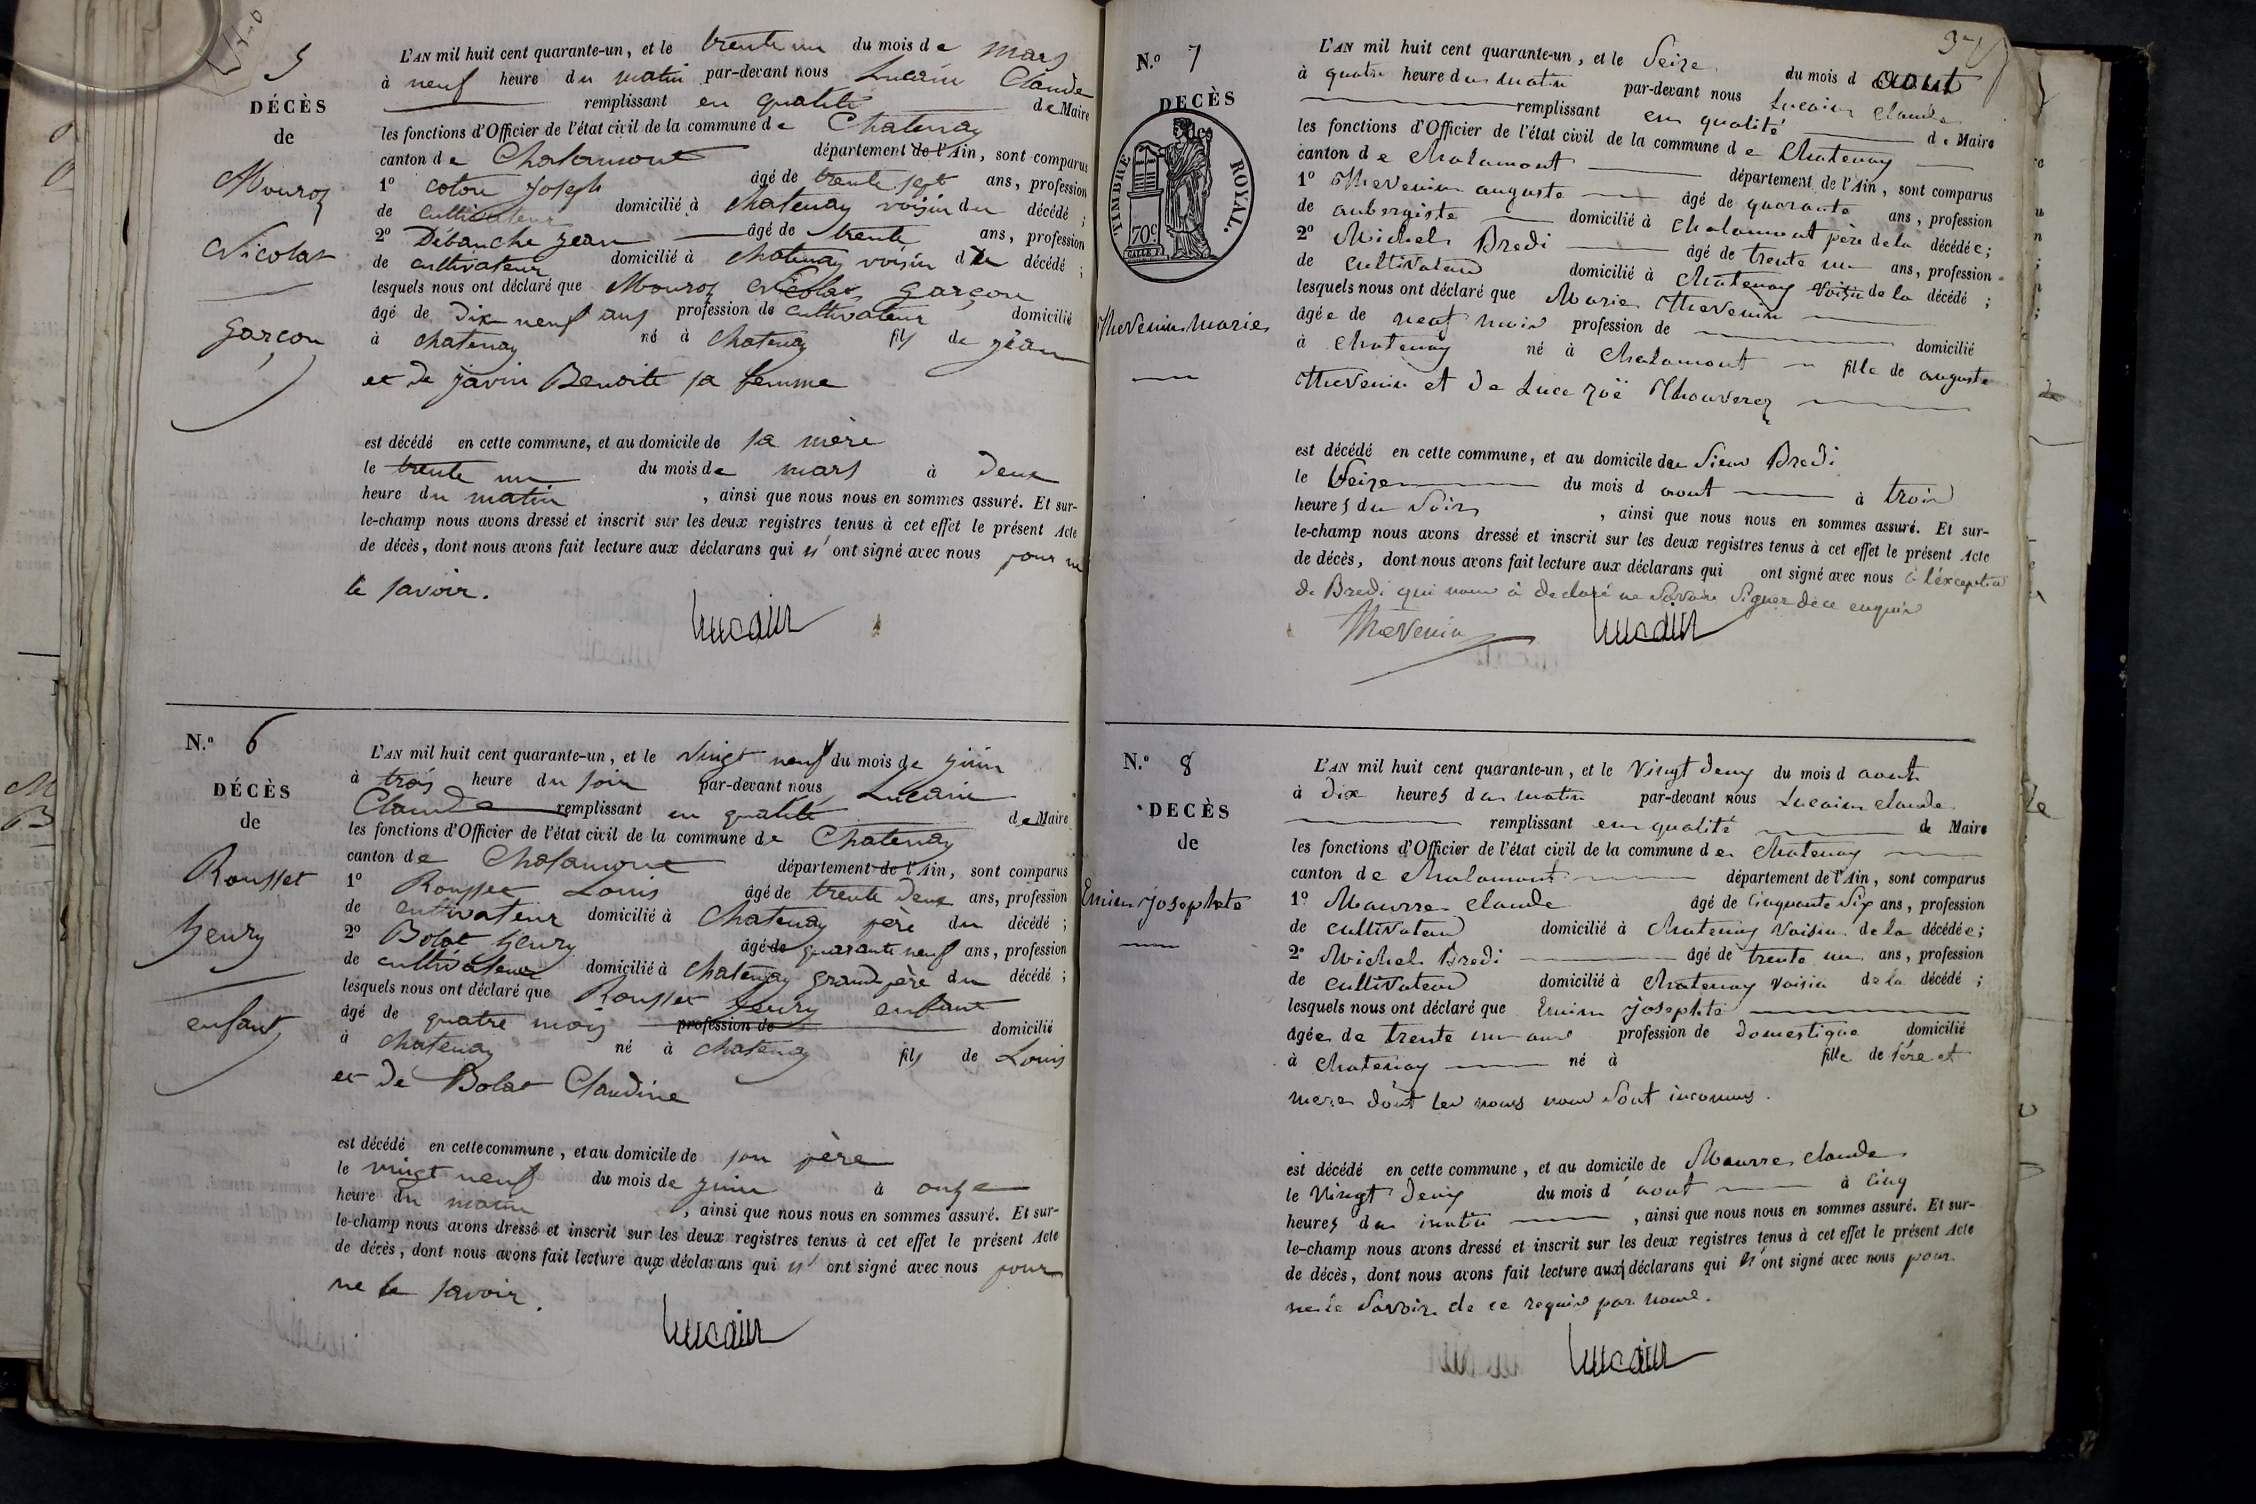 5
DÉCÈS
de
Mouroz
Nicolas
garçon
L'AN mil huit cent quarante-un, et le trente un du mois de mars
à neuf heure du matin par-devant nous Lucain Claude
remplissant en qualité de Maire
les fonctions d'Officier de l'état civil de la commune de Chatenay
canton de Chalamont département de l'Ain, sont comparus
1° coton joseph âgé de trente sept ans, profession
de cultivateur domicilié à chatenay voisin du décédé ;
2° Débanche jean âgé de trente ans, profession
de cultivateur domicilié à chatenay voisin du décédé ;
lesquels nous ont déclaré que Mouroz Nicolas garçon
âgé de dix neuf ans profession de cultivateur domicilié
à chatenay né à chatenay fils de jean
et de javin Benoite sa femme
est décédé en cette commune, et au domicile de sa mère
le trente un du mois de mars à deux
heure du matin , ainsi que nous nous en sommes assuré. Et sur-
le-champ nous avons dressé et inscrit sur les deux registres tenus à cet effet le présent Acte
de décès, dont nous avons fait lecture aux déclarans qui n'ont signé avec nous pour ne
le savoir.
Lucain
N.° 6
DÉCÈS
de
Rousset
henry
enfant
L'AN mil huit cent quarante-un, et le vingt neuf du mois de juin
à trois heure du soir par-devant nous Lucain
Claude remplissant en qualité de Maire
les fonctions d'Officier de l'état civil de la commune de Chatenay
canton de Chalamont département de l'Ain, sont comparus
1° Rousset Louis âgé de trente deux ans, profession
de cultivateur domicilié à Chatenay père du décédé ;
2° Bolat henry âgé de quarante neuf ans, profession
de cultivateur domicilié à chatenay grand père du décédé ;
lesquels nous ont déclaré que Rousset henry enfant
âgé de quatre mois profession de domicilié
à chatenay né à chatenay fils de Louis
et de Bolat Claudine
est décédé en cette commune, et au domicile de son père
le vingt neuf du mois de juin à onze
heure du matin , ainsi que nous nous en sommes assuré. Et sur-
le-champ nous avons dressé et inscrit sur les deux registres tenus à cet effet le présent Acte
de décès, dont nous avons fait lecture aux déclarans qui n'ont signé avec nous pour
ne le savoir.
Lucain
37
N.° 7
DECÈS
TIMBRE ROYAL.
70c
Thevenin Marie
L'AN mil huit cent quarante-un, et le Seize du mois d aout
à quatre heure du matin par-devant nous Lucain Claude
remplissant en qualité de Maire
les fonctions d'Officier de l'état civil de la commune de Chatenay
canton de chalamont département de l'Ain, sont comparus
1° Thevenin auguste âgé de quarante ans, profession
de aubergiste domicilié à Chalamont père de la décédée;
2° Michel Bredi âgé de trente un ans, profession
de cultivateur domicilié à Chatenay voisin de la décédé ;
lesquels nous ont déclaré que Marie Thevenin
âgée de neuf mois profession de domicilié
à chatenay né à Chalamont fille de auguste
Thevenin et de Luce Zoë Thouverez
est décédé en cette commune, et au domicile du Sieur Bredi
le Seize du mois d aout à trois
heures du Soir , ainsi que nous nous en sommes assuré. Et sur-
le-champ nous avons dressé et inscrit sur les deux registres tenus à cet effet le présent Acte
de décès, dont nous avons fait lecture aux déclarans qui ont signé avec nous à l'exception
de Bredi qui nous à declaré ne Savoir Signer de ce enquis
Thevenin Lucain
N.° 8
DECÈS
de
Emien josephte
L'AN mil huit cent quarante-un, et le vingt deux du mois d aout
à dix heures du matin par-devant nous Lucain claude
remplissant en qualité de Maire
les fonctions d'Officier de l'état civil de la commune de Chatenay
canton de chalamont département de l'Ain, sont comparus
1° Maurre claude âgé de Cinquante Six ans, profession
de cultivateur domicilié à Chatenay Voisin de la décédée;
2° Michel Bredi âgé de trente un ans, profession
de cultivateur domicilié à Chatenay voisin de la décédé ;
lesquels nous ont déclaré que Emien josephte
âgée de trente un ans profession de domestique domicilié
à chatenay né à fille de Père et
mere dont les noms nous Sont inconnus.
est décédé en cette commune, et au domicile de Maurre claude
le Vingt deux du mois d'aout à Cinq
heures du matin , ainsi que nous nous en sommes assuré. Et sur-
le-champ nous avons dressé et inscrit sur les deux registres tenus à cet effet le présent Acte
de décès, dont nous avons fait lecture aux déclarans qui n'ont signé avec nous pour
ne le Savoir de ce requis par nous.
Lucain